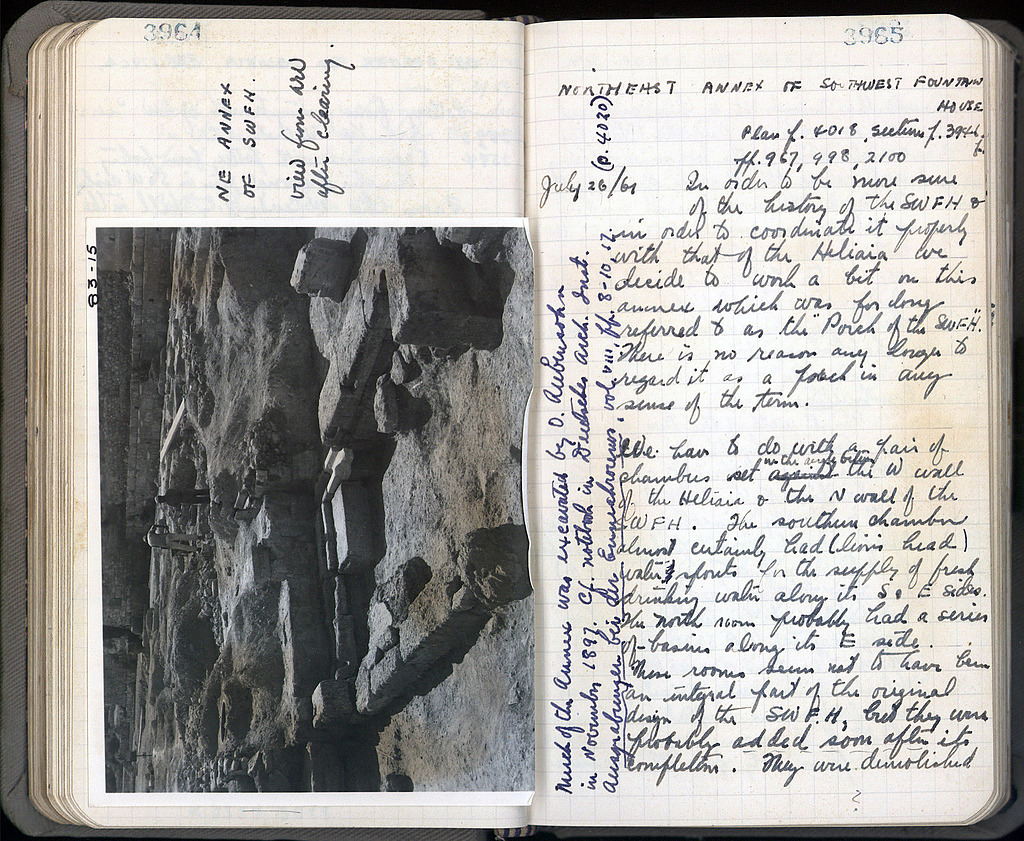 3964
NE ANNEX
OF SWFH.
view from
after cleaning.
83-15
3965
NORTHEAST ANNEX OF SOUTHWEST FOUNTAIN
HOUSE
Plan p. 4018, sections p. 3946
pp. 967, 998, 2100
(p. 4020)
July 26/61 In order to be more sure
of the history of the SWFH &
in order to coordinate it properly
with that of the Heliaia we
decide to work a bit on this
annex which was for long
referred to as the "Porch of the SWFH".
There is no reason any longer to
regard it as a porch in any
sense of the term.
We have to do with a pair of
chambers set against in the angle between the W wall
of the Heliaia & the N wall of the
SWFH. The southern chamber
almost certainly had (lion's head)
water spouts for the supply of fresh
drinking water along its S & E sides.
The north room probably had a series
of basins along its E side.
These rooms seem not to have been
an integral part of the original
design of the SWFH, but they were
probably added soon after its
completion. They were demolished
Much of the Annex was excavated by O. Rubensohn
in November 1897. Cf. notebook in Deutsches Arch. Inst.
Ausgrabungen bei der Enneakrounos, vol. VIII, pp. 8-10, 12.